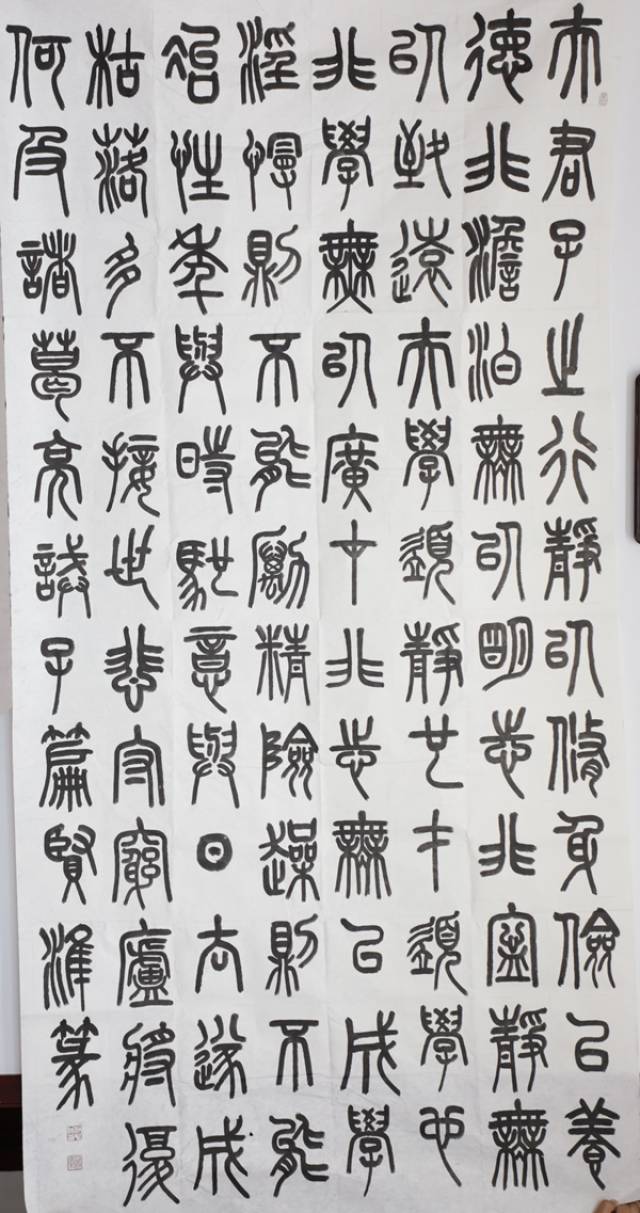 夫君子之行靜以脩身儉以養
德非澹泊無以明志非寧靜無
以致遠夫學須靜也才須學也
非學無以廣才非志無以成學
淫慢則不能勵精險躁則不能
治性年與時馳意與日去遂成
枯落多不接世悲守窮廬將復
何及諸葛亮誡子篇賢淮篆